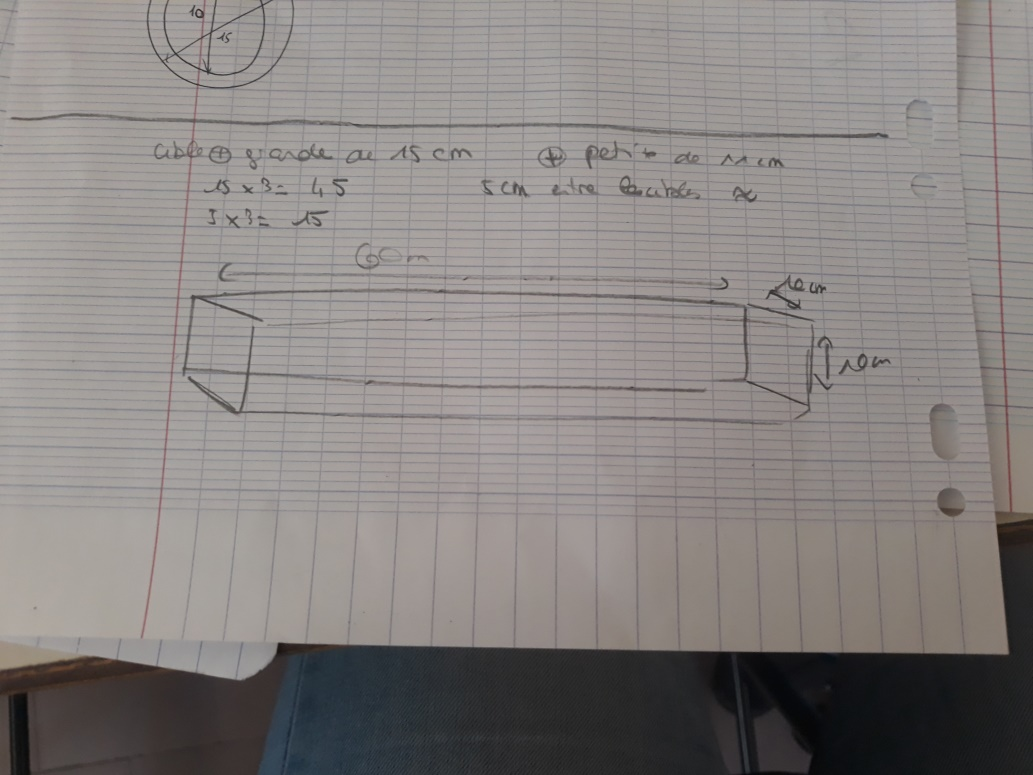 10
15
cible ⊕ grande de 15 cm ⊕ petite de 11 cm
15 x 3 = 45 5 cm entre les cibles ≈
5 x 3 = 15
60 m
10 cm
10 cm